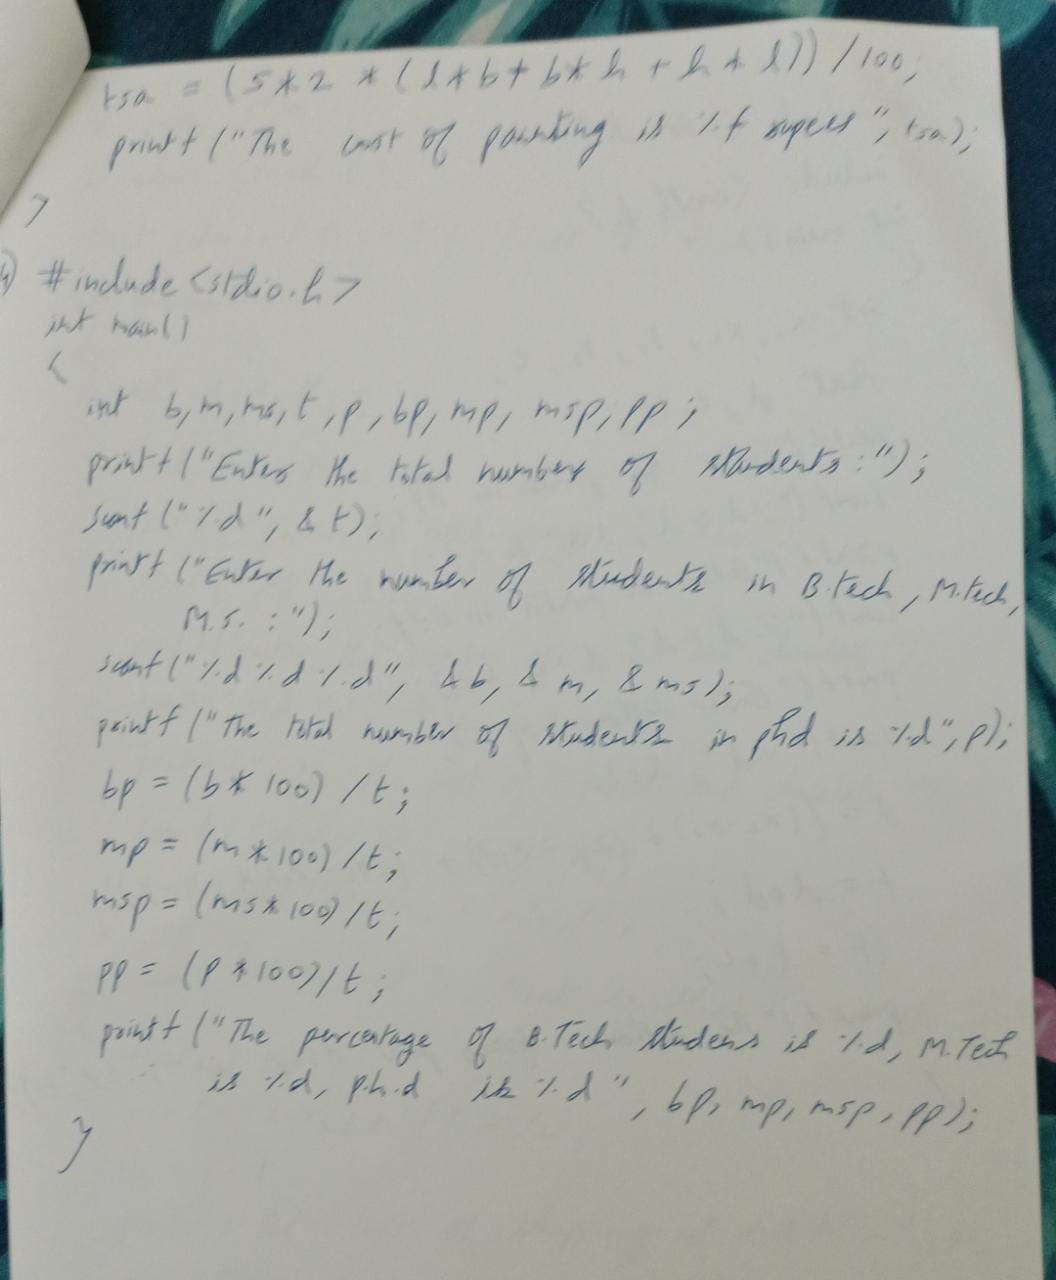 tsa = (5*2 * (l*b+b*h+h*l))/100;
printf("The cost of painting is %f rupees", tsa);
}
4) #include<stdio.h>
int main()
{
int b,m,ms,t,p,bp,mp,msp,pp;
printf("Enter the total number of students:");
scanf("%d", &t);
printf("Enter the number of students in B.tech, M.tech,
M.S. :");
scanf("%d%d%d", &b, &m, &ms);
printf("The total number of students in phd is %d", p);
bp = (b*100)/t;
mp = (m*100)/t;
msp = (ms*100)/t;
pp = (p*100)/t;
printf("The percentage of B.Tech studens is %d, M.Tech
is %d, p.h.d is %d", bp, mp, msp, pp);
}